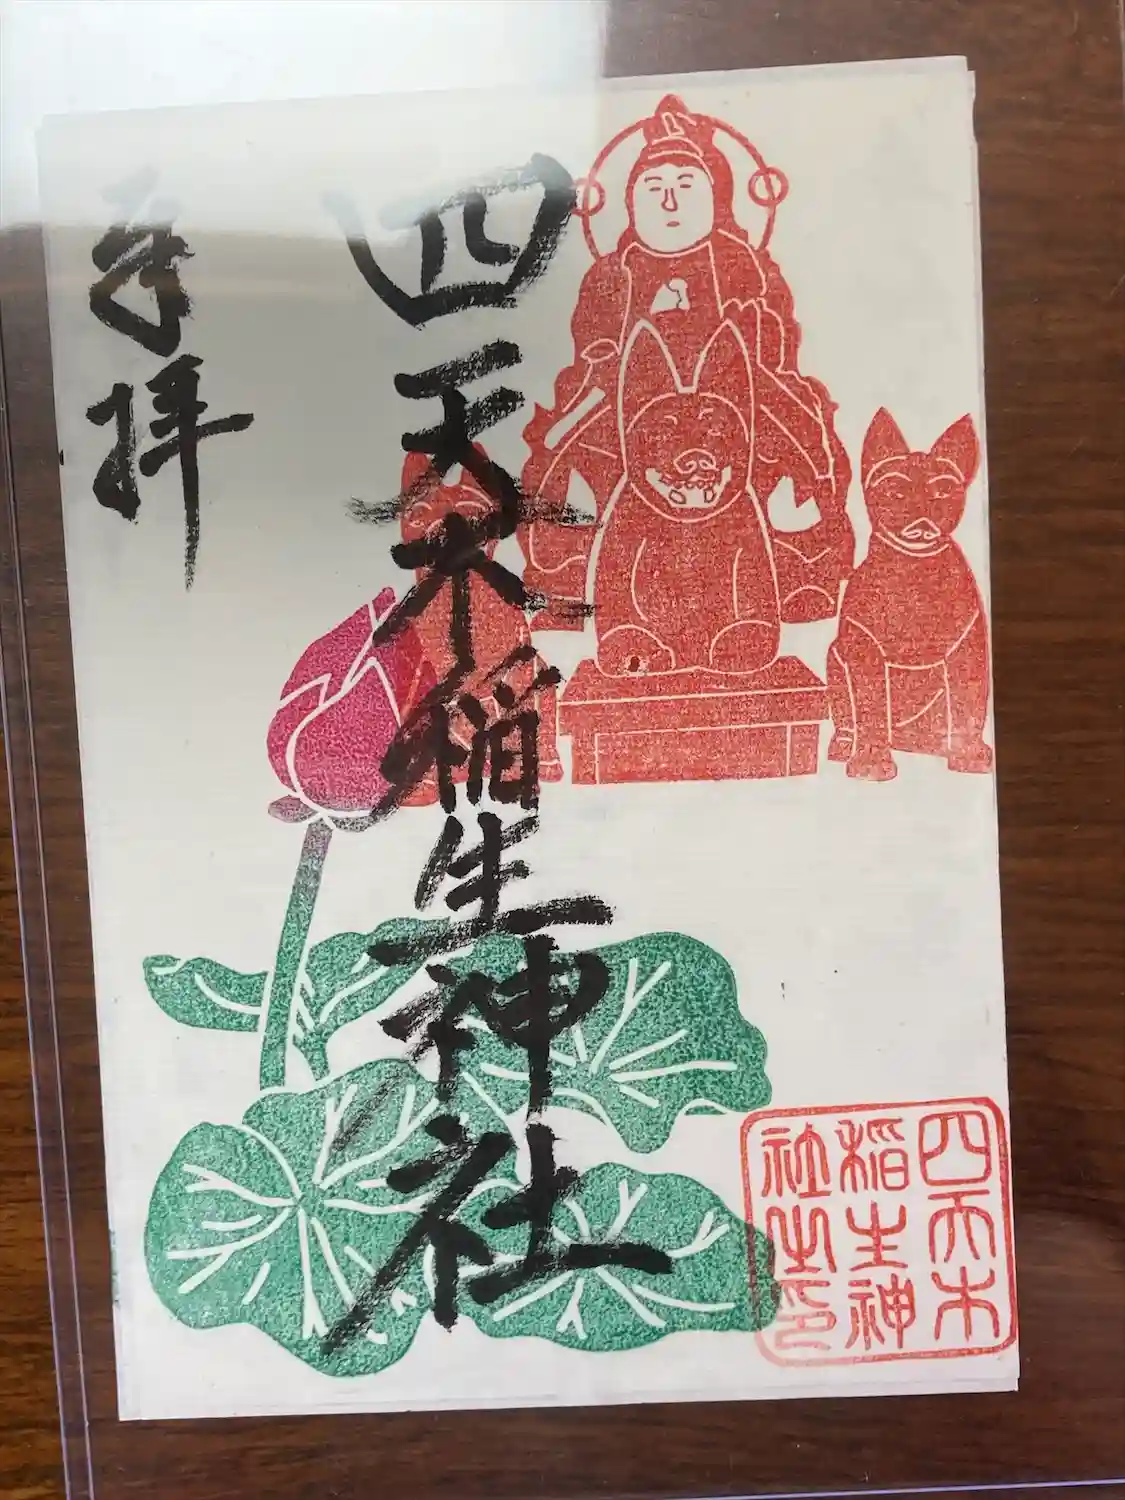 四天木稲生神社
奉拝
四天木
稲生神
社之印